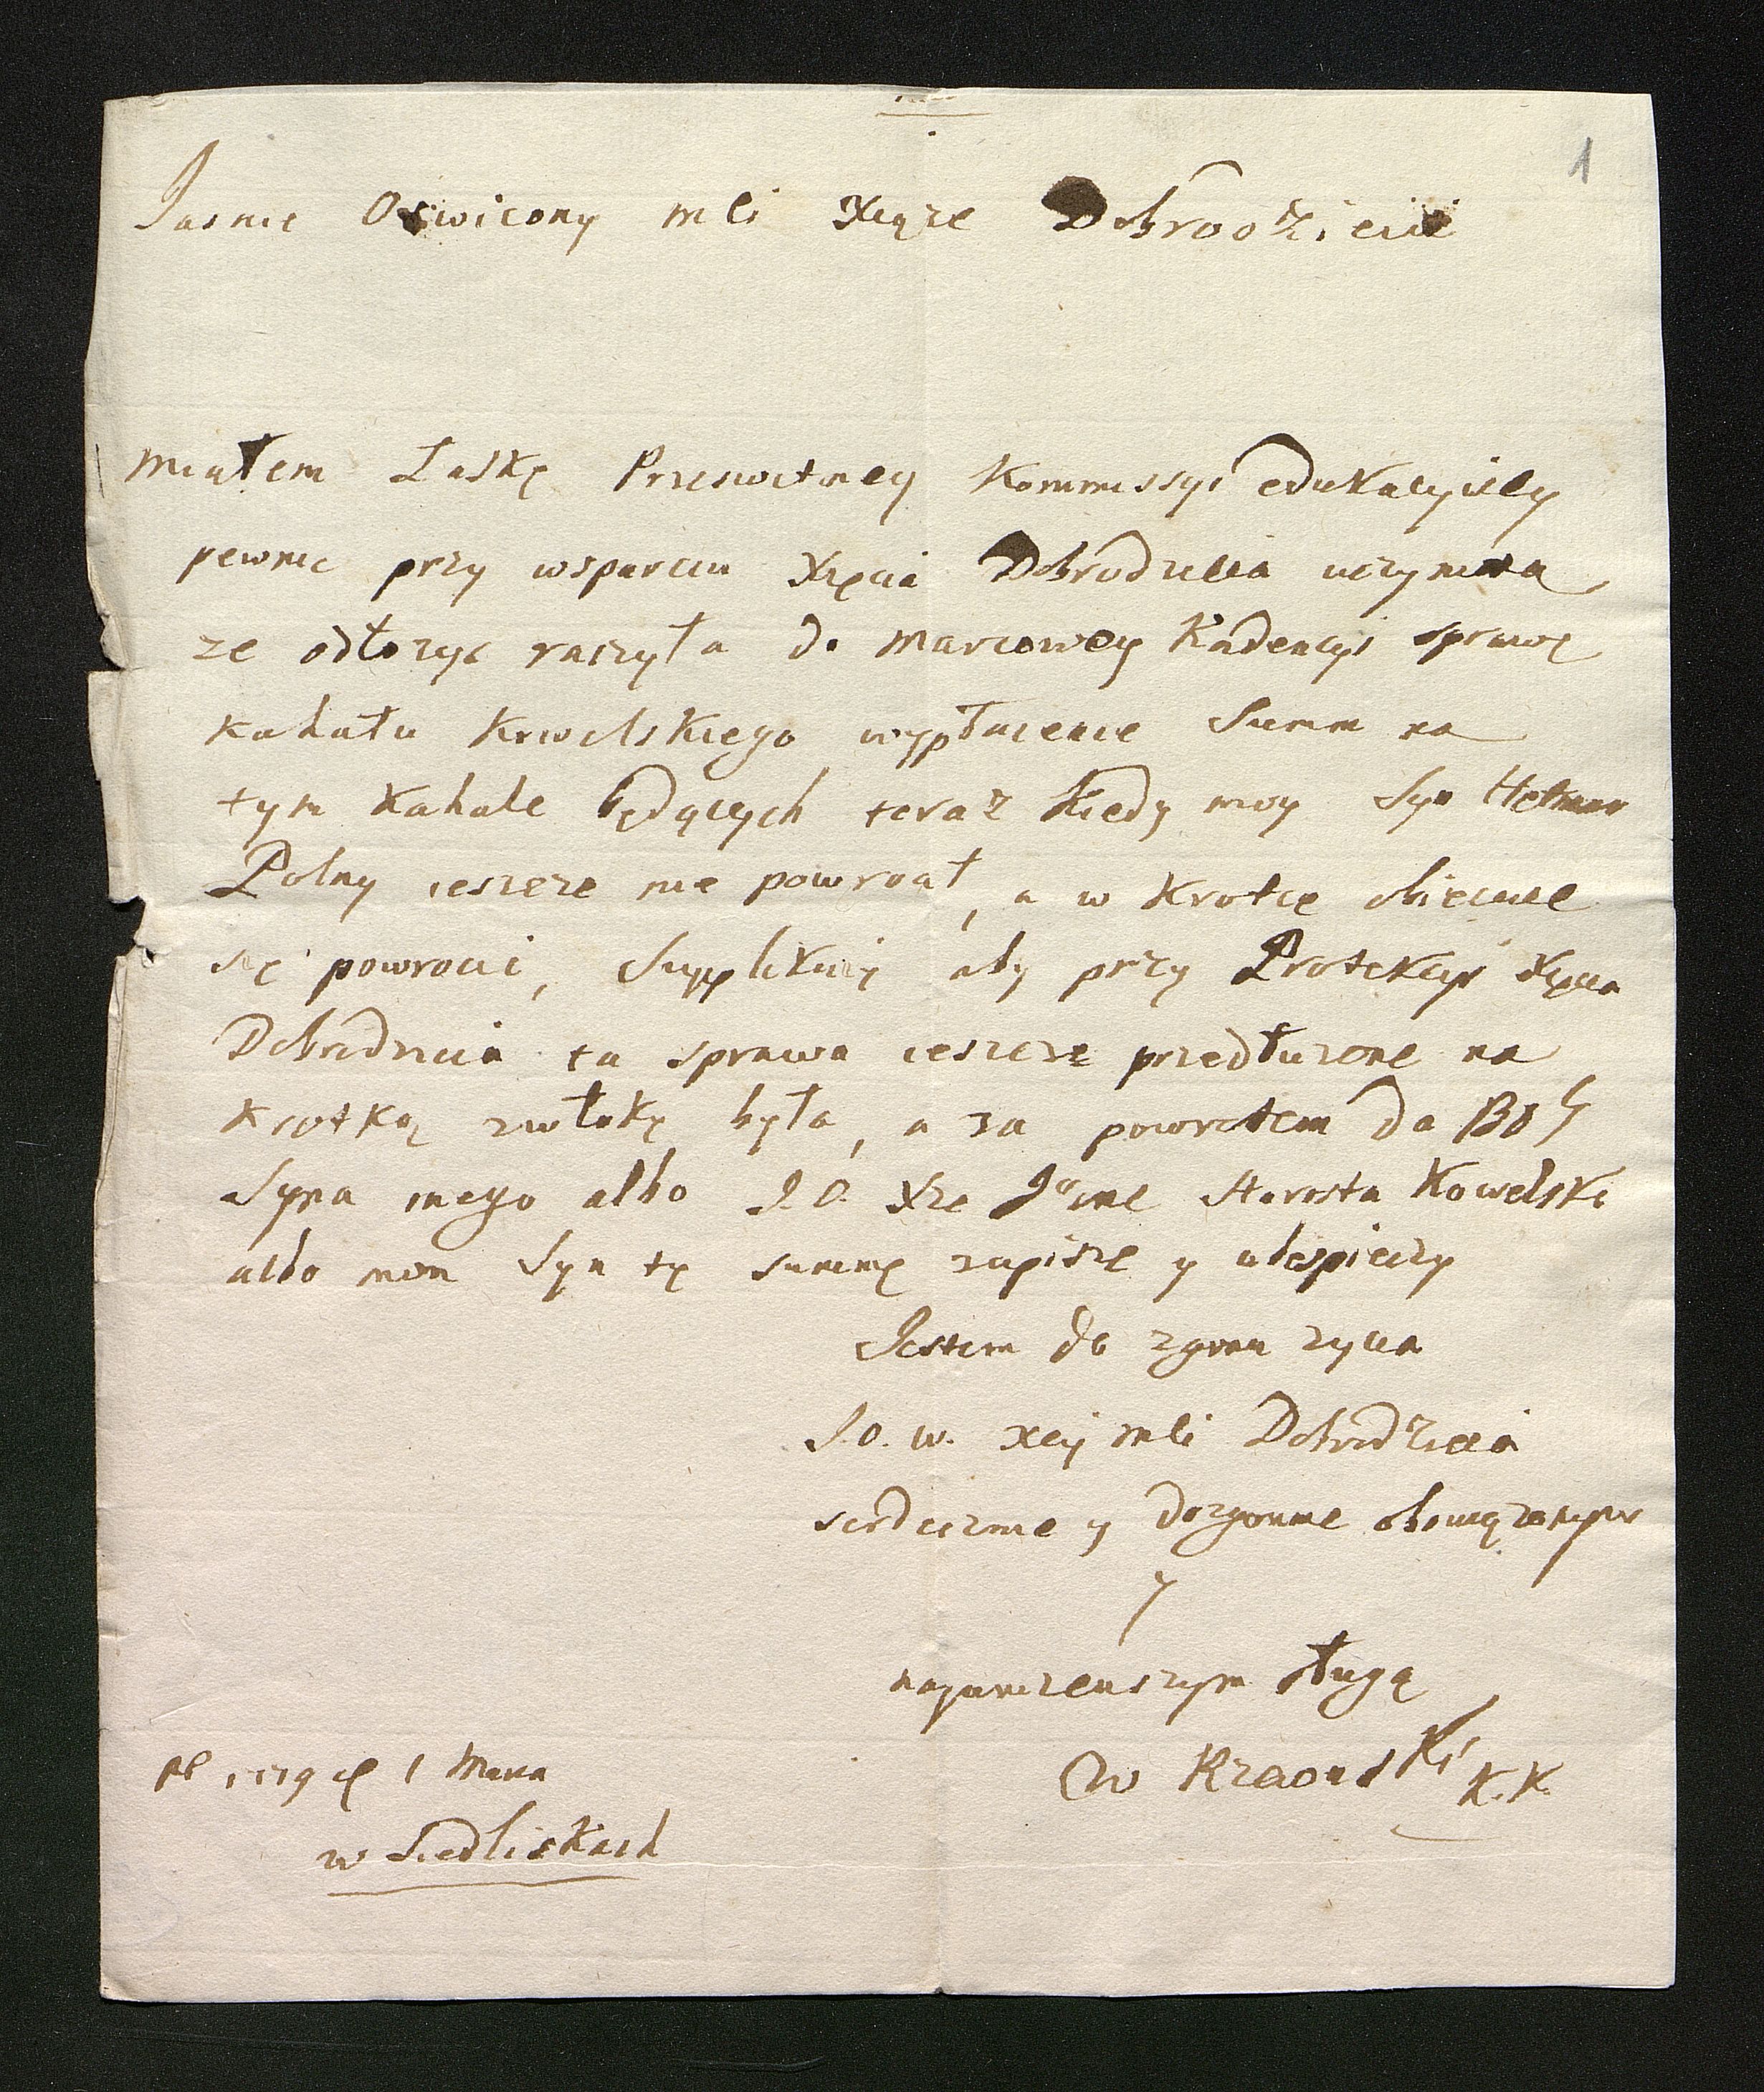 1
Jasnie Oswicony mci Xiąze Dobrodzieiu
miałem Łaskę Przeswetney Kommissyi edukacyiney
pewnie przy wsparciu Xięcia Dobrodzieia uczyniona
ze odłozyc raczyła do marcowey Kadencyi sprawę
kahału kowelskiego wypłacenie Summ na
tym Kahale będących teraz kiedy moy Syn Hetman
Polny ieszcze nie powrocił, a w krotce obiecuie
się powrocic, Supplikuię aby przy Protekcyi Xięcia
Dobrodzieia ta sprawa ieszcze przedłuzone na
krotką zwłokę była, a za powrotem da BOG
Syna mego albo J.O. Xze Jmc Starosta Kowelski
albo mon Syn tę summę zapisze y ubespieczy
Jestem do zgonu zycia
J.O. w. Xcy mci Dobrodzieia
serdecznie y dozgonnie obowiązanym
y
nayunizenszym sługą
W Rzewuski K.K.
1779 1 Marca
w Siedliskach